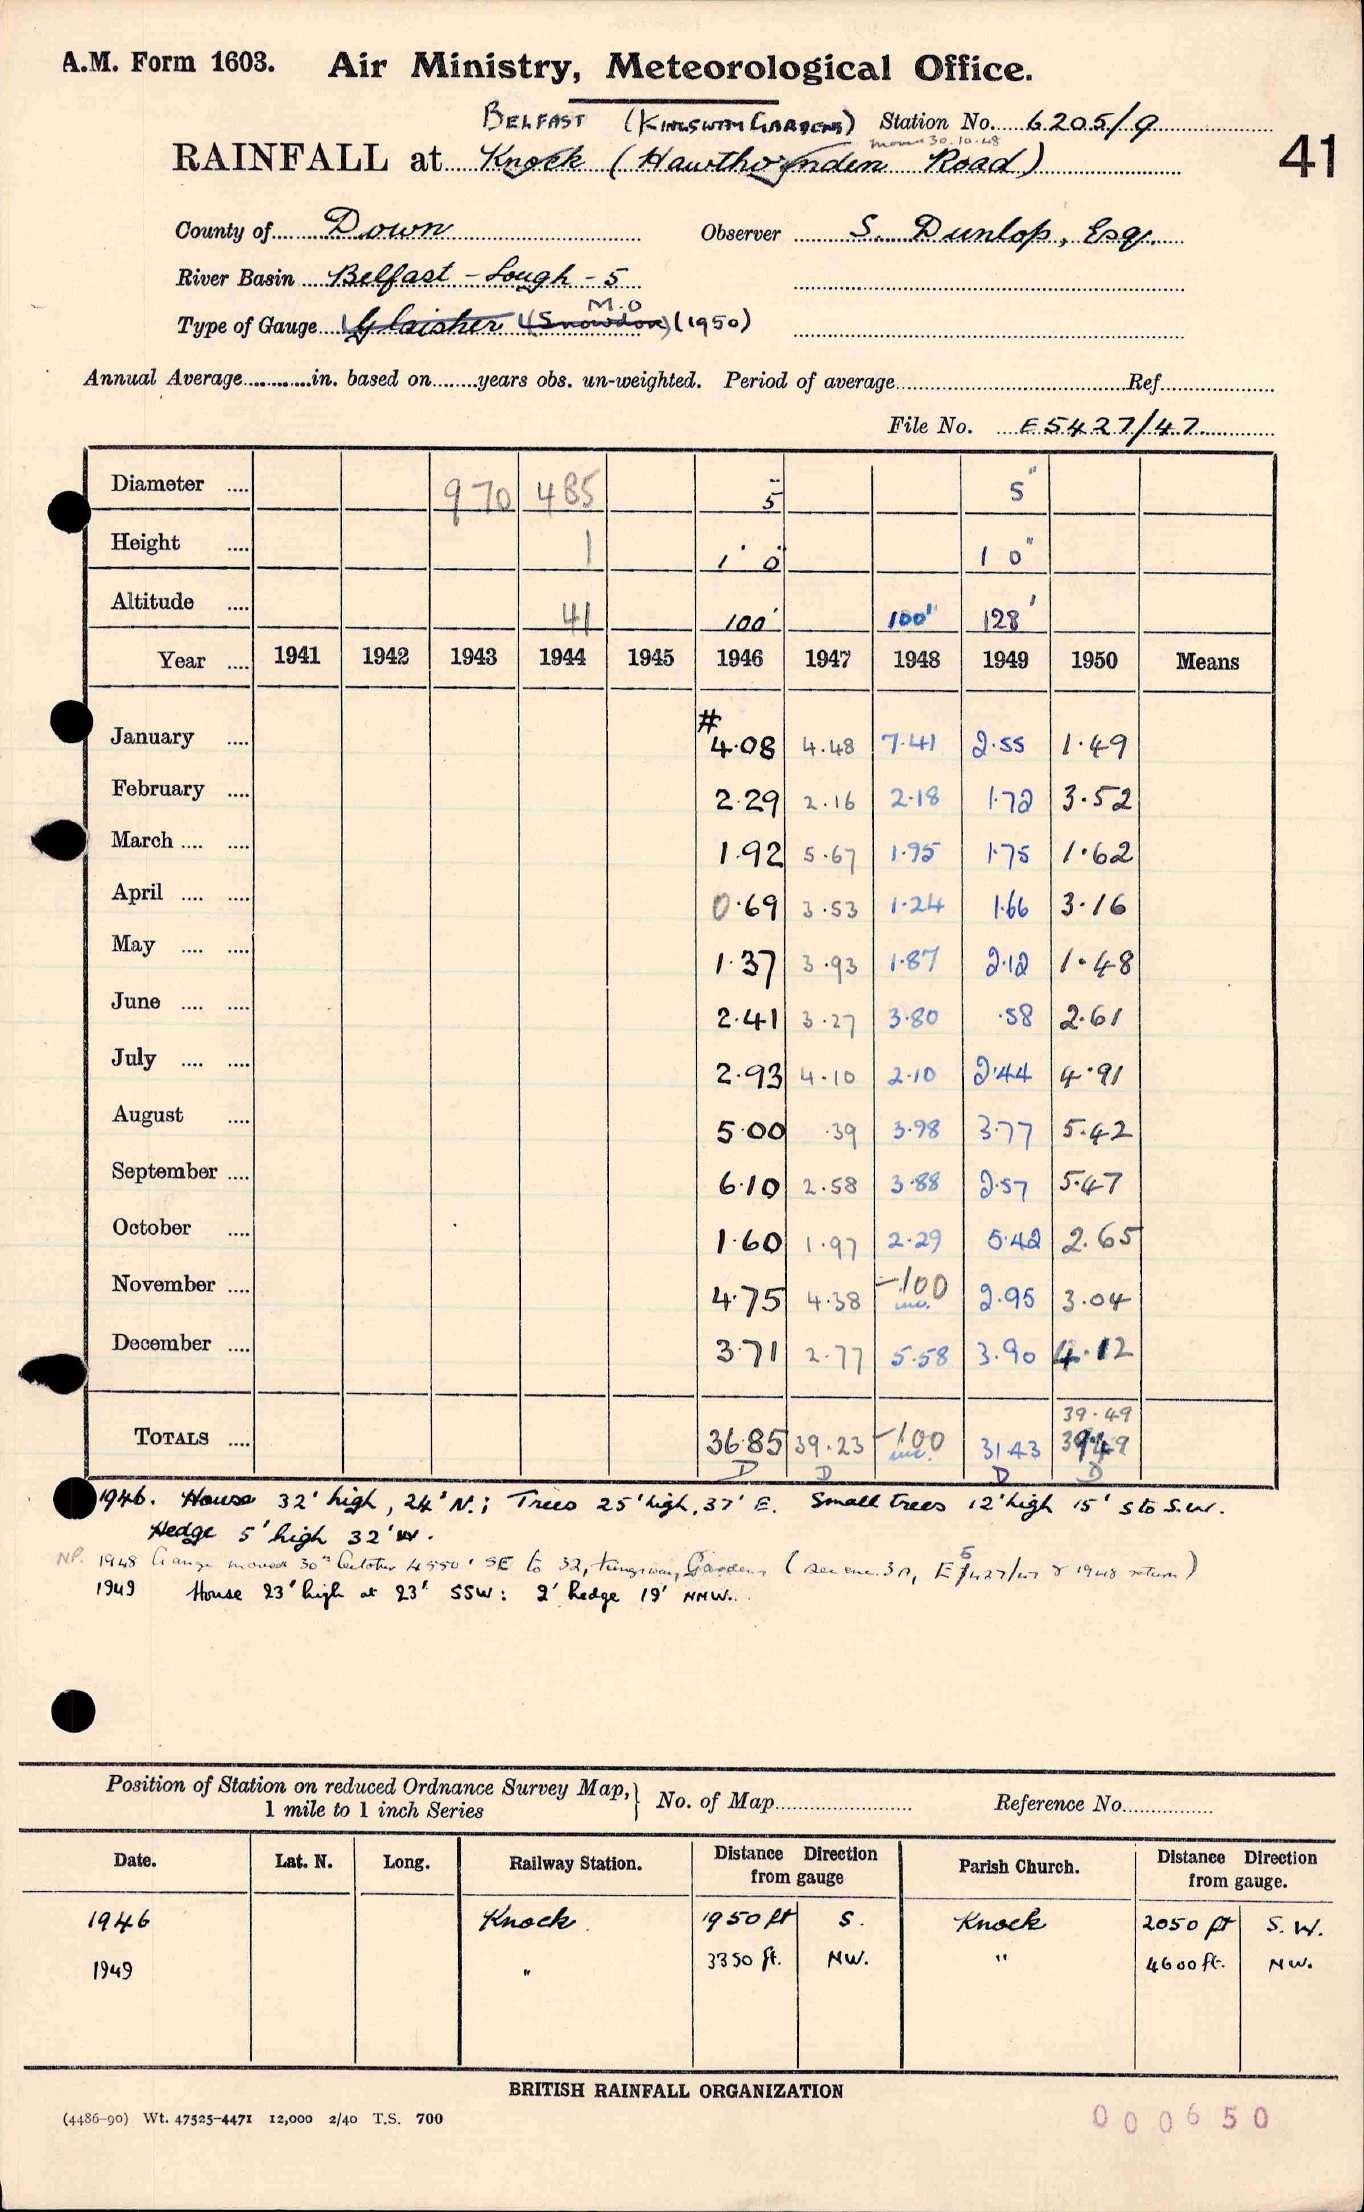 A.M. Form 1603. Air Ministry, Meteorological Office.
BELFAST (KINGSWAY GARDENS) Station No. 6205/9
moved 30.10.48
RAINFALL at Knock (Hawthornden Road)
41
County of Down Observer S. Dunlop, Esq.
River Basin Belfast - Lough - 5
M.O
Type of Gauge Glaisher (Snowdon) (1950)
Annual Average in. based on years obs. un-weighted. Period of average Ref
File No. E5427/47
Diameter 970 485 5" 5"
Height 1 1' 0" 1 0"
Altitude 41 100' 100' 128'
Year 1941 1942 1943 1944 1945 1946 1947 1948 1949 1950 Means
#
January 4.08 4.48 7.41 2.55 1.49
February 2.29 2.16 2.18 1.72 3.52
March 1.92 5.67 1.95 1.75 1.62
April 0.69 3.53 1.24 1.66 3.16
May 1.37 3.93 1.87 2.12 1.48
June 2.41 3.27 3.80 .58 2.61
July 2.93 4.10 2.10 2.44 4.91
August 5.00 .39 3.98 3.77 5.42
September 6.10 2.58 3.88 2.57 5.47
October 1.60 1.97 2.29 5.42 2.65
November 4.75 4.38 -100 inc. 2.95 3.04
December 3.71 2.77 5.58 3.90 4.12
39.49
TOTALS 36.85 39.23 -100 inc. 31.43 39.49
D D D D
1946. House 32' high, 24' N.; Trees 25' high, 37' E. Small trees 12' high 15' S to S.W.
Hedge 5' high 32' W.
NP. 1948 Gauge moved 30th October 4550' SE to 32, Kingsway Gardens (see enc. 3A, E5427/47 & 1948 return)
1949 House 23' high at 23' SSW: 2' hedge 19' NNW.
Position of Station on reduced Ordnance Survey Map,
1 mile to 1 inch Series
No. of Map Reference No.
Date. Lat. N. Long. Railway Station. Distance from gauge Direction Parish Church. Distance from gauge. Direction
1946 Knock 1950 ft S. Knock 2050 ft S.W.
1949 " 3350 ft. NW. " 4600 ft. NW.
BRITISH RAINFALL ORGANIZATION
(4486-90) Wt. 47525-4471 12,000 2/40 T.S. 700
000650